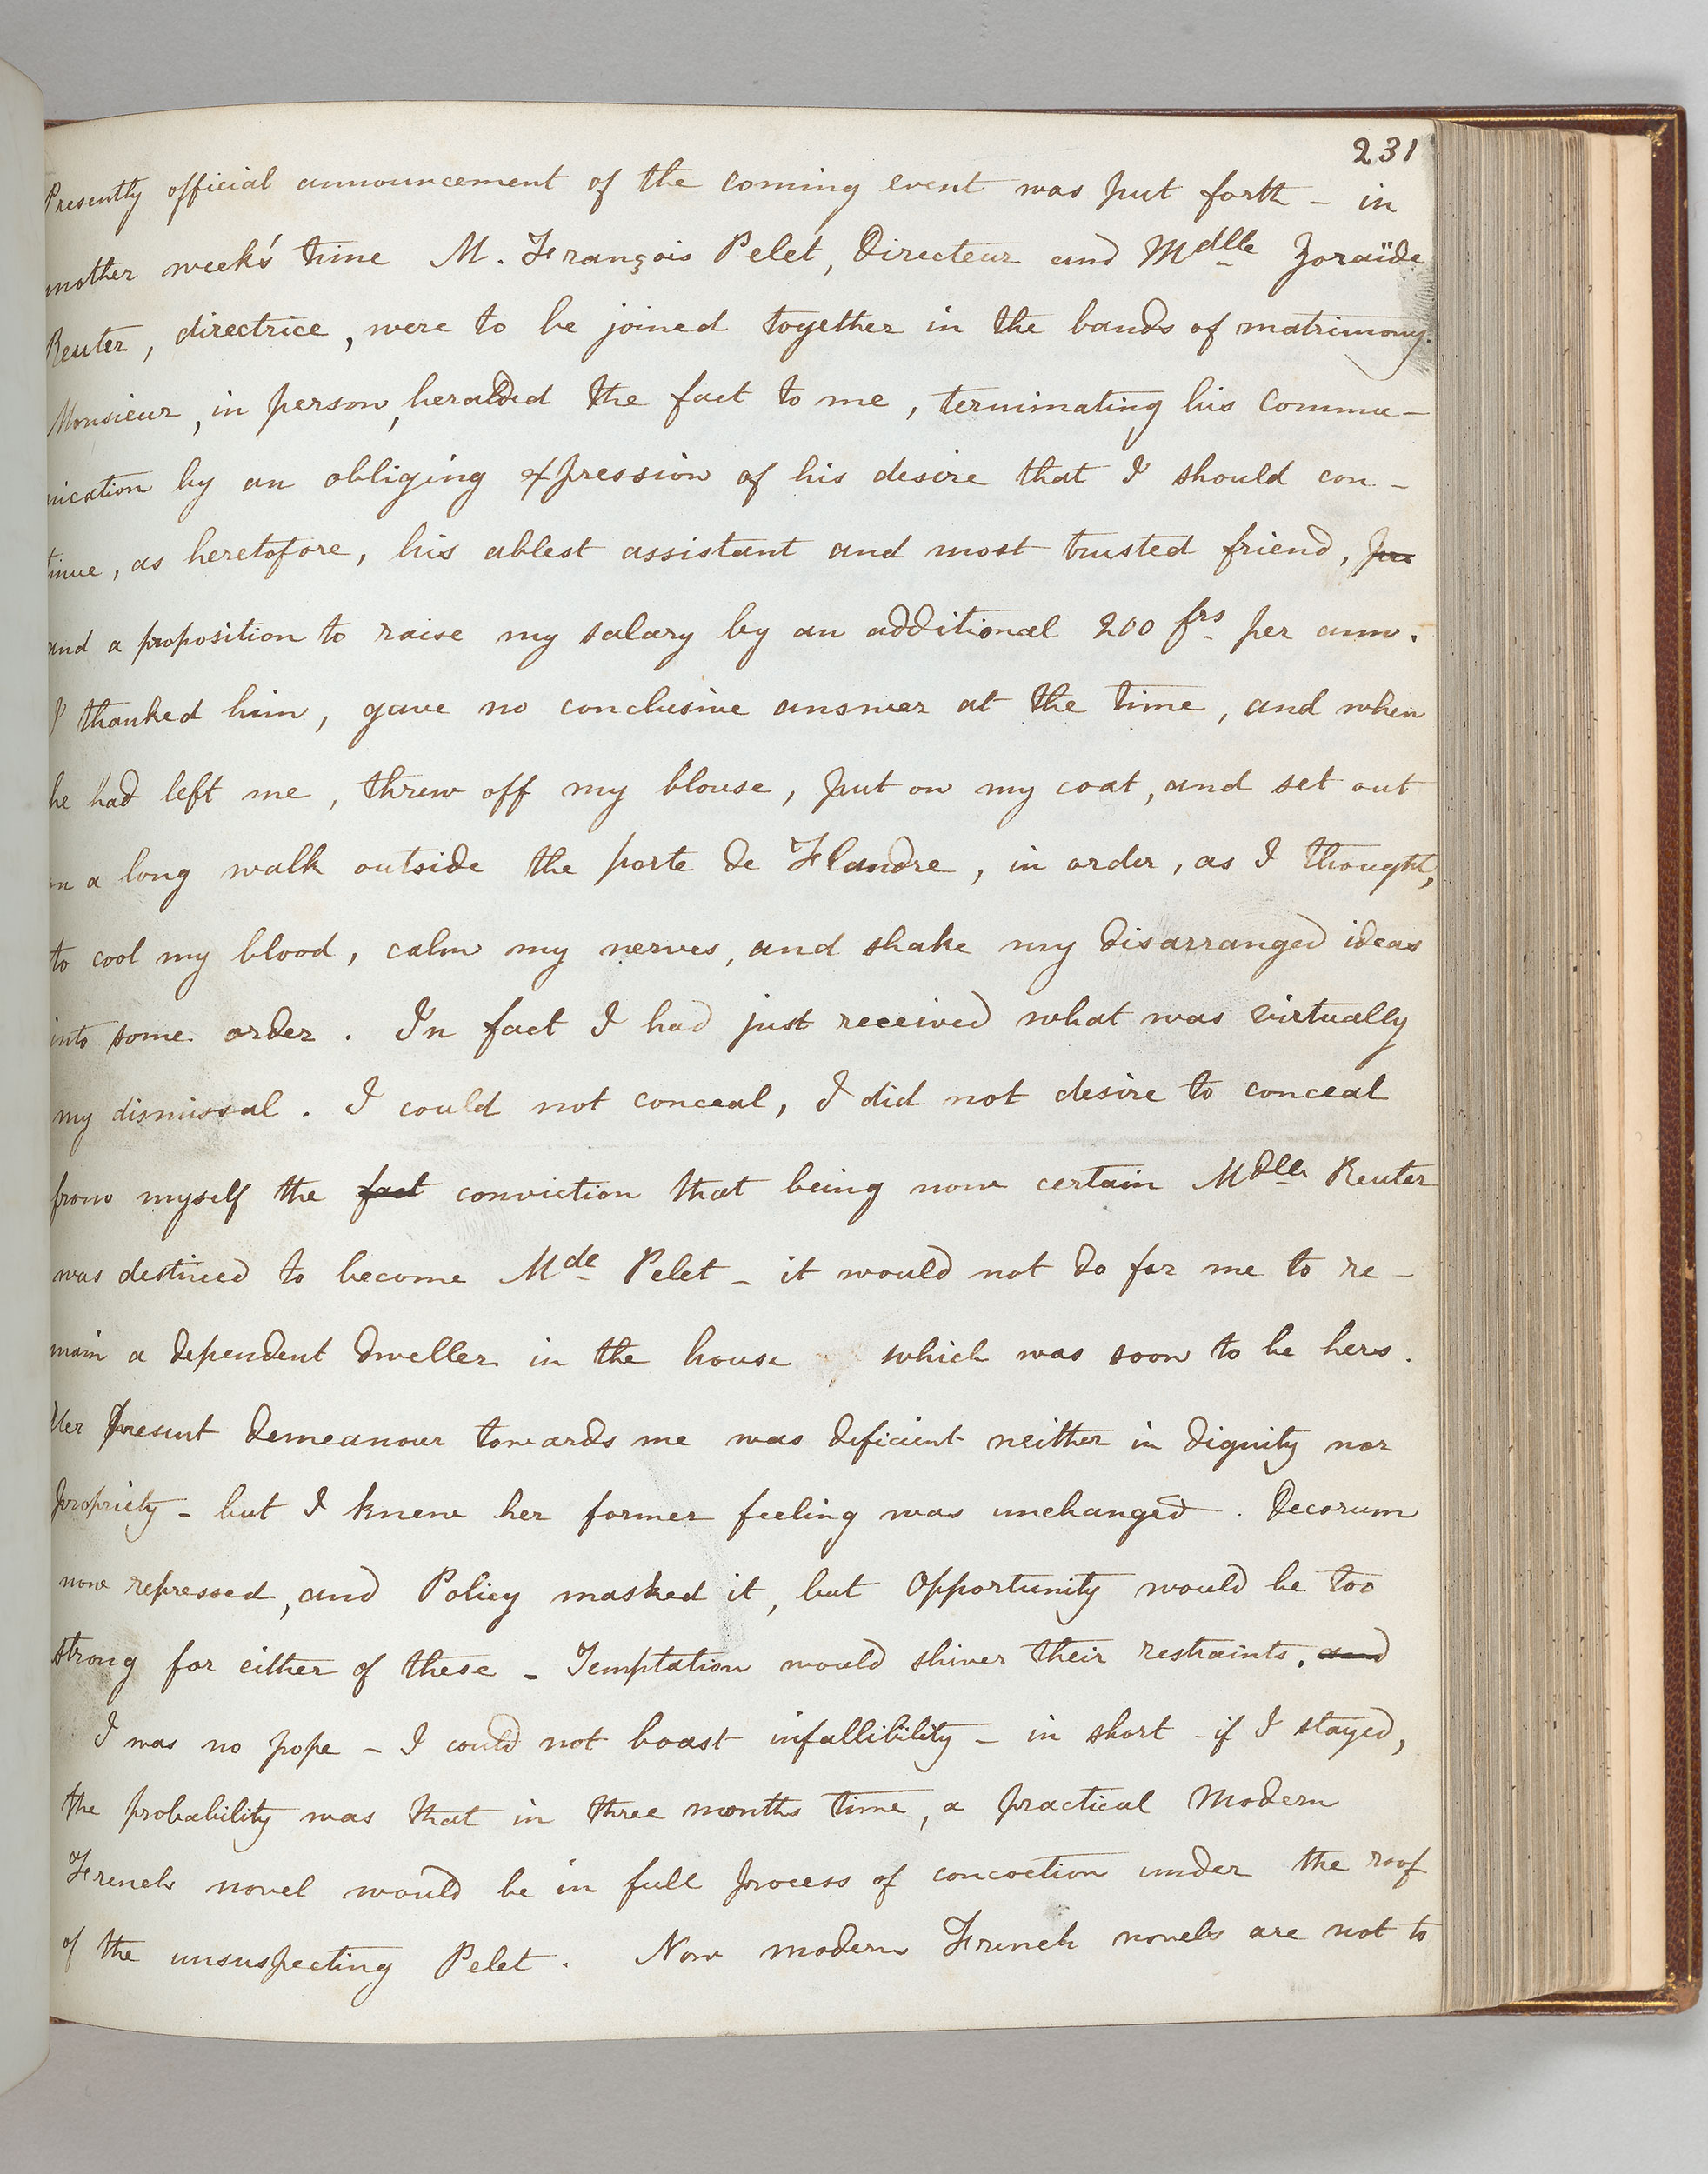 231
Presently official announcement of the coming event was put forth - in
another week's time M. François Pelet, Directeur and Mdlle Zoraïde
Reuter, directrice, were to be joined together in the bands of matrimony.
Monsieur, in person, heralded the fact to me, terminating his commu-
nication by an obliging expression of his desire that I should con-
tinue, as heretofore, his ablest assistant and most trusted friend,
and a proposition to raise my salary by an additional 200 frs per ann.
I thanked him, gave no conclusive answer at the time, and when
he had left me, threw off my blouse, put on my coat, and set out
on a long walk outside the porte de Flandre, in order, as I thought,
to cool my blood, calm my nerves, and shake my disarranged ideas
into some order. In fact I had just received what was virtually
my dismissal. I could not conceal, I did not desire to conceal
from myself the fact conviction that being now certain Mdlle Reuter
was destined to become Mde Pelet - it would not do for me to re-
main a dependent dweller in the house which was soon to be hers.
Her present demeanour towards me was deficient neither in dignity nor
propriety - but I knew her former feeling was unchanged. Decorum
now repressed, and Policy masked it, but Opportunity would be too
strong for either of these - Temptation would shiver their restraints. and
I was no pope - I could not boast infallibility - in short - if I stayed,
the probability was that in three months time, a practical Modern
French novel would be in full process of concoction under the roof
of the unsuspecting Pelet. Now modern French novels are not to